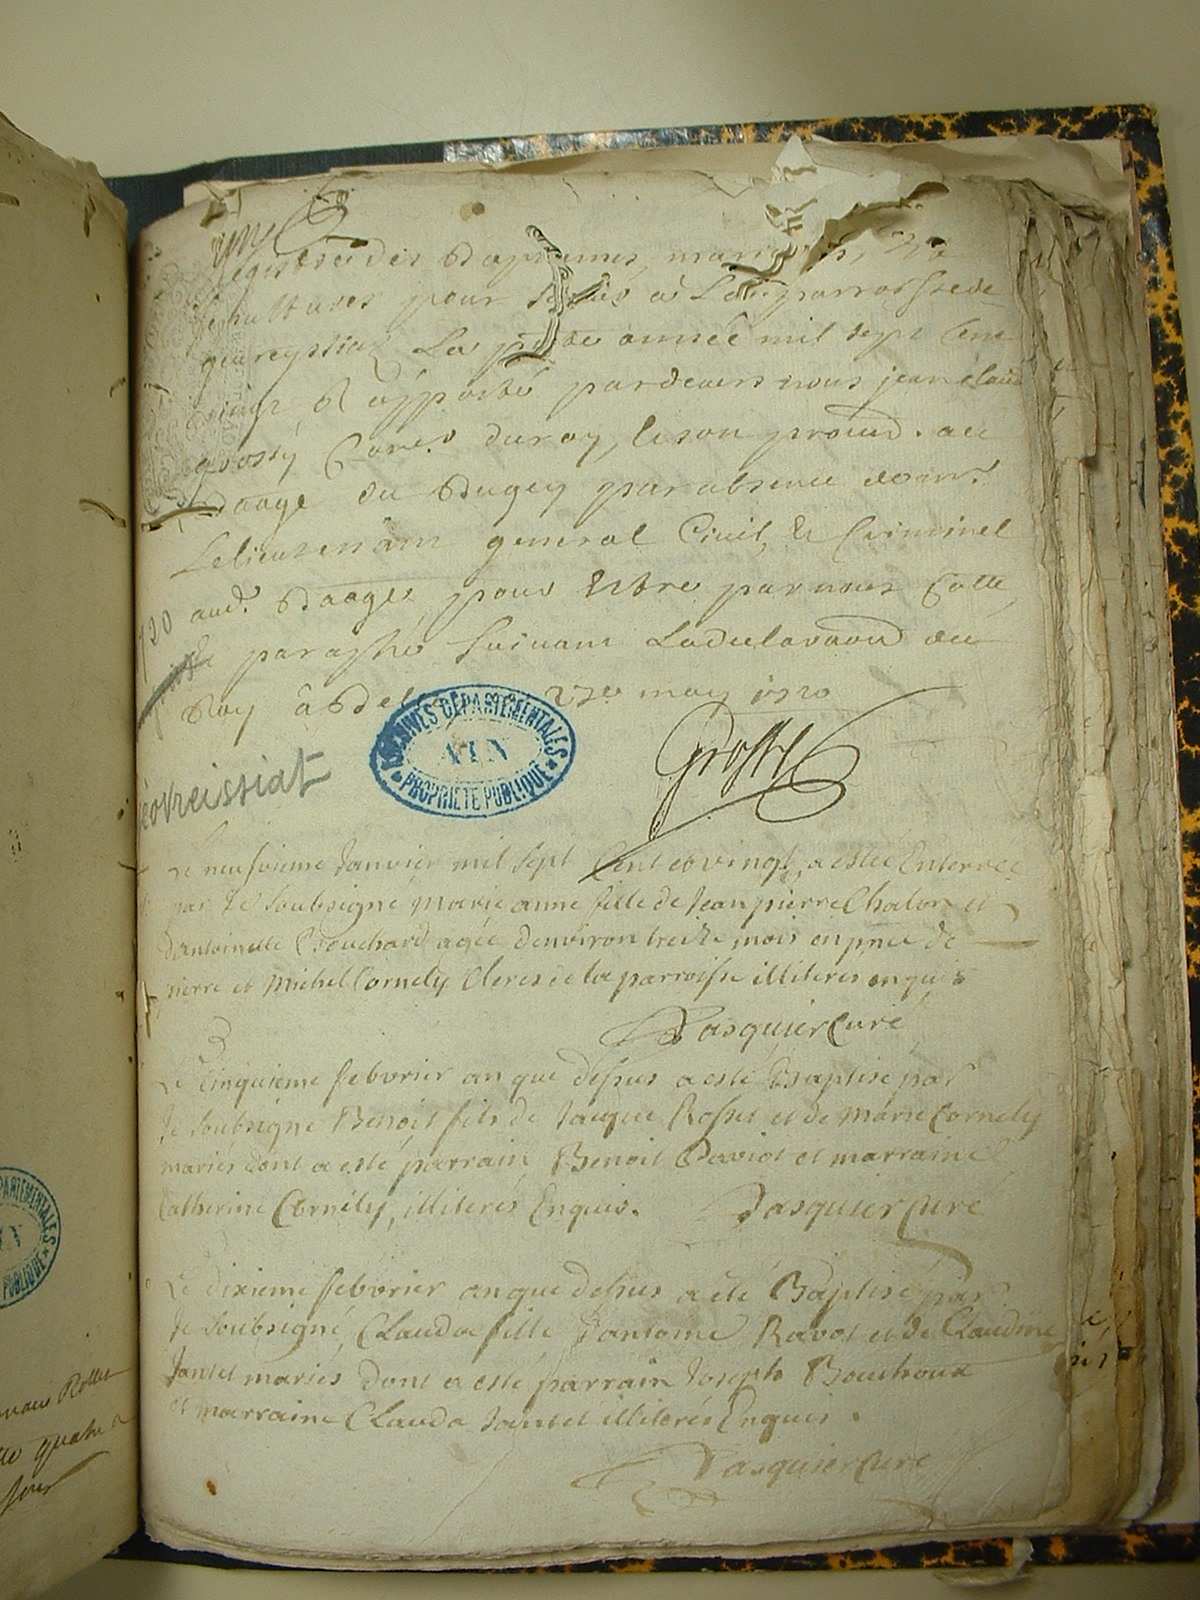 Registre des Baptemes, mariages, &
sepultures pour servir a La parroisse de
geureyssiaz La pnte année mil sept Cent
vingt & apporté pardevers nous jean claude
grossy Conser du roy, & son procud. au
Baage du Bugey par absence de mr
Le lieutenam general Civil, & Criminel
aud. Baage pour Estre par nous Cotte
120
& paraphé suivant La declaraon du
Roy à Bel 27e may 1720
ARCHIVES DÉPARTEMENTALES
AIN
PROPRIÉTÉ PUBLIQUE
Grossy
Géovreissiat
Le neufvieme Janvier mil sept Cent et vingt, a estée Enterrée
par Je soubsigné Marie anne fille de Jean pierre Chalon et
d'antoinette Bouchard agée d'environ treize mois en pnce de
pierre et Michel Cornely Clercs de la parroisse illiterés enquis
Pasquier Curé
Le Cinquieme febvrier an que dessus a esté Baptisé par
Je soubsigné Benoit fils de Jacque Rosset et de Marie Cornely
mariés dont a esté parrain Benoit Daviot et marraine
Catherine Cornély, illiterés Enquis. Pasquier Curé
Le dixieme febvrier an que dessus a été Baptisé par
Je soubsigné, Clauda fille d'antoine Ravot et de Claudine
Jantet mariés dont a esté parrain Joseph Bouchoux
et marraine Clauda Jantet illiterés Enquis.
Pasquier Curé
quatre